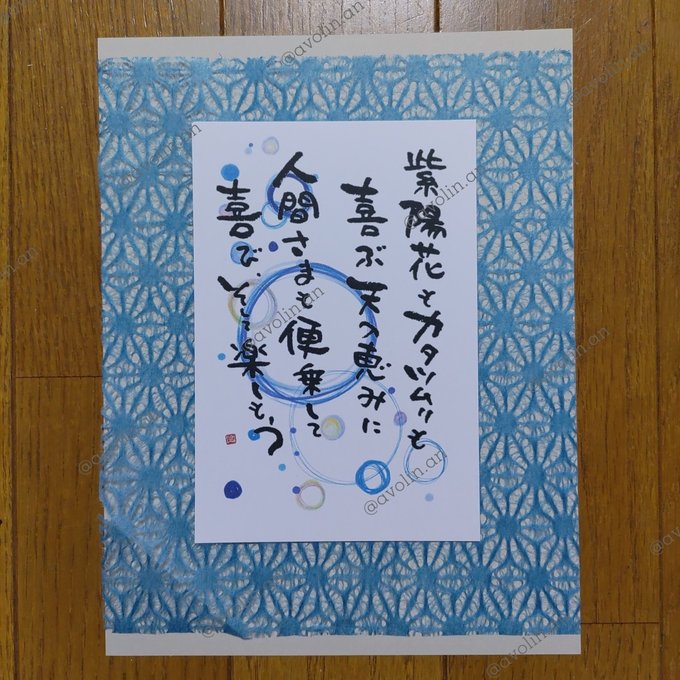 紫陽花もカタツムリも
喜ぶ天の恵みに
人間さまも便乗して
喜び、そして楽しもう
@avolin.an
@avolin.an
@avolin.an
@avolin.an
@avolin.an
@avolin.an
@avolin.an
@avolin.an
@avolin.an
@avolin.an